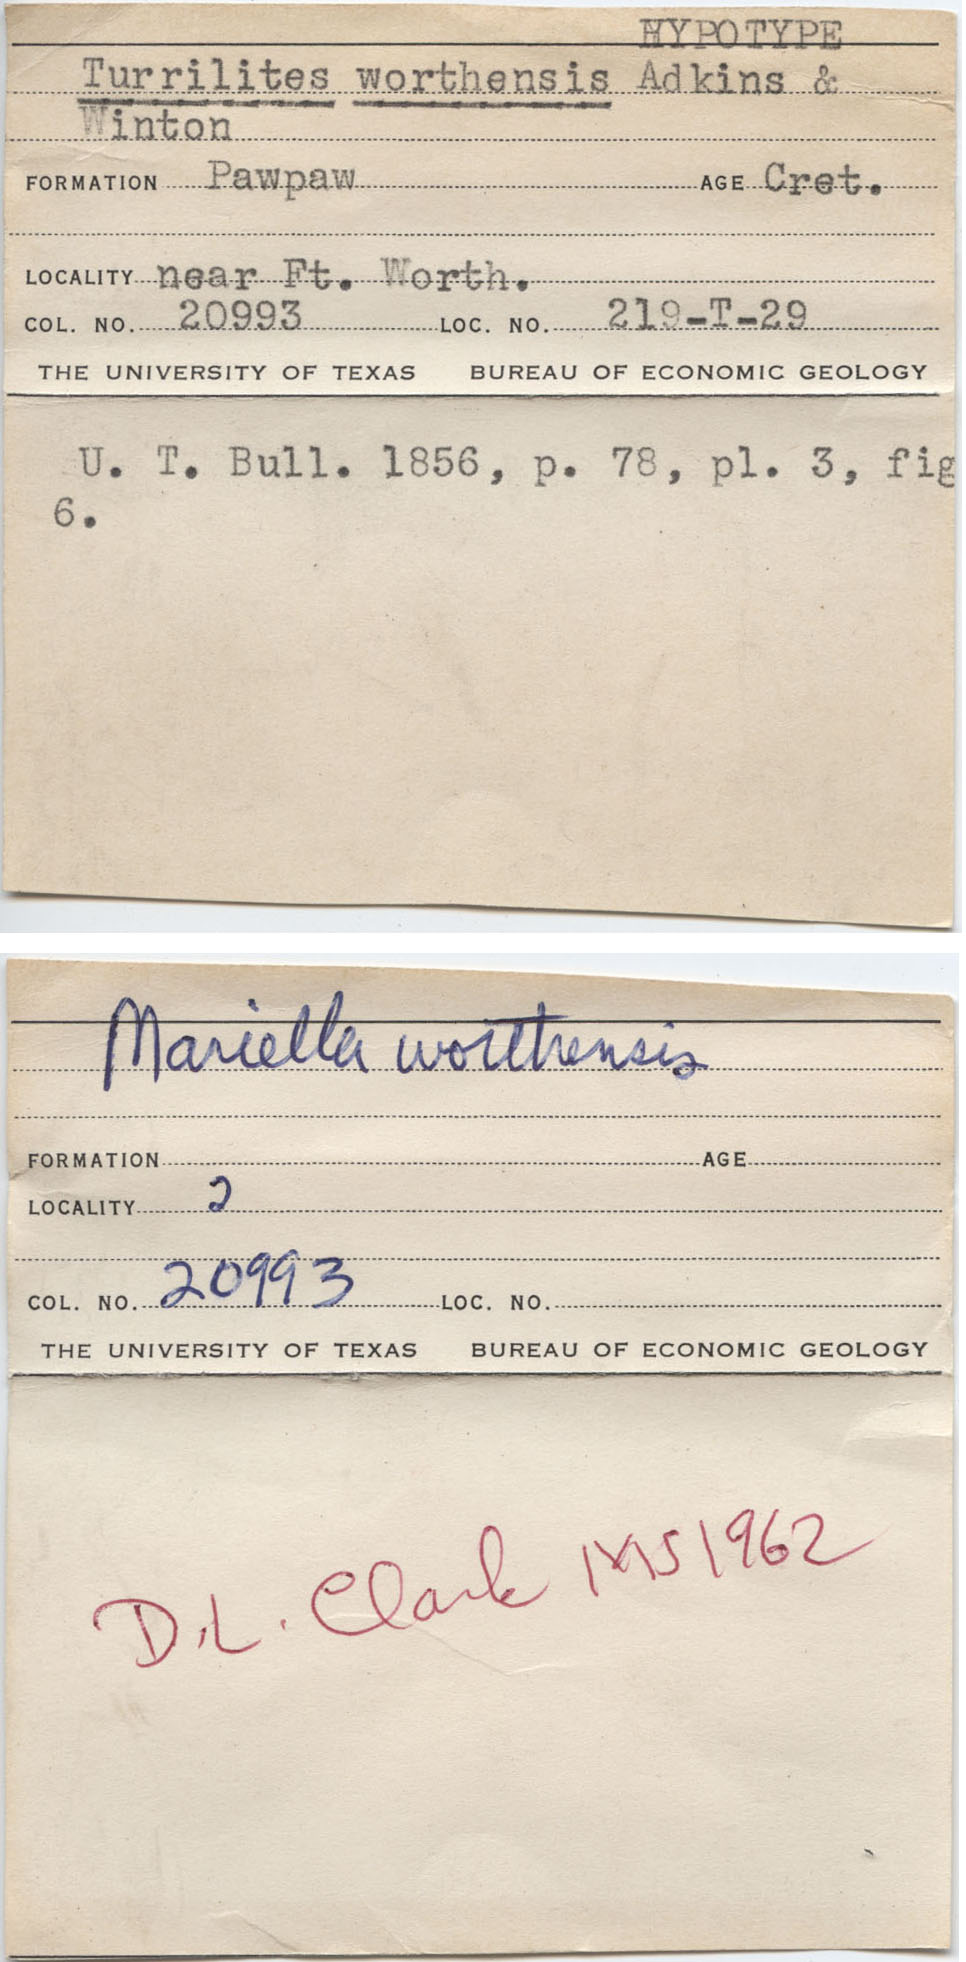 HYPOTYPE
Turrilites worthensis Adkins &
Winton
FORMATION Pawpaw AGE Cret.
LOCALITY near Ft. Worth.
COL. NO. 20993 LOC. NO. 219-T-29
THE UNIVERSITY OF TEXAS BUREAU OF ECONOMIC GEOLOGY
U. T. Bull. 1856, p. 78, pl. 3, fig
6.
Mariella worthensis
FORMATION AGE
LOCALITY 2
COL. NO. 20993 LOC. NO.
THE UNIVERSITY OF TEXAS BUREAU OF ECONOMIC GEOLOGY
D.L. Clark 1962